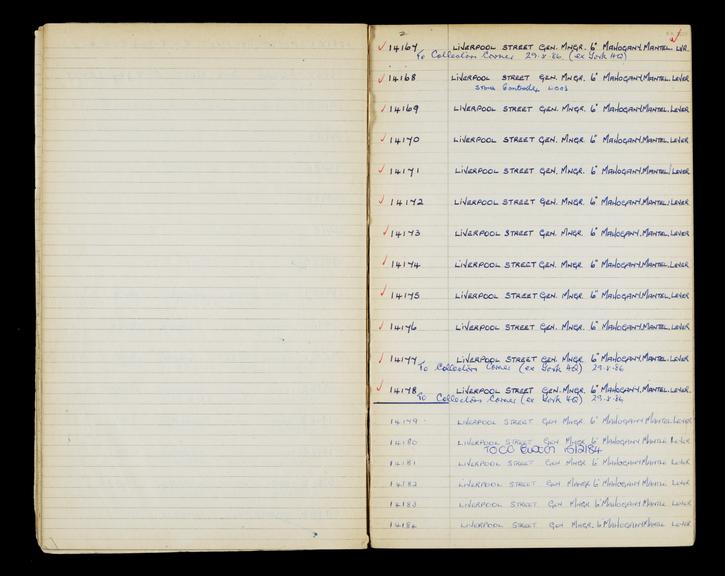 2
14167 LIVERPOOL STREET GEN. MNGR. 6" MAHOGANY.MANTEL. LVR.
To Collectors Corner 29.8.86. (ex York HQ)
14168 LIVERPOOL STREET GEN. MNGR. 6" MAHOGANY.MANTEL.LEVER
Stores Controller
14169 LIVERPOOL STREET GEN. MNGR. 6" MAHOGANY.MANTEL.LEVER
14170 LIVERPOOL STREET GEN. MNGR. 6" MAHOGANY.MANTEL.LEVER
14171 LIVERPOOL STREET GEN. MNGR. 6" MAHOGANY.MANTEL.LEVER
14172 LIVERPOOL STREET GEN. MNGR. 6" MAHOGANY.MANTEL.LEVER
14173 LIVERPOOL STREET GEN. MNGR. 6" MAHOGANY.MANTEL.LEVER
14174 LIVERPOOL STREET GEN. MNGR. 6" MAHOGANY.MANTEL.LEVER
14175 LIVERPOOL STREET GEN. MNGR. 6" MAHOGANY.MANTEL.LEVER
14176 LIVERPOOL STREET GEN. MNGR. 6" MAHOGANY.MANTEL.LEVER
14177 LIVERPOOL STREET GEN. MNGR. 6" MAHOGANY.MANTEL.LEVER
To Collectors Corner (ex York HQ) 29.8.86
14178 LIVERPOOL STREET GEN. MNGR. 6" MAHOGANY.MANTEL.LEVER.
To Collectors Corner (ex York HQ) 29.8.86
14179 LIVERPOOL STREET GEN MNGR. 6" MAHOGANY MANTEL LEVER
14180 LIVERPOOL STREET GEN MNGR 6" MAHOGANY MANTLE LEVER
TO CC
14181 LIVERPOOL STREET GEN MNGR 6" MAHOGANY MANTLE LEVER
14182 LIVERPOOL STREET GEN MANGR 6" MAHOGANY MANTLE LEVER
14183 LIVERPOOL STREET GEN MNGR 6" MAHOGANY MANTLE LEVER
14184 LIVERPOOL STREET GEN MNGR. 6" MAHOGANY MANTLE LEVER